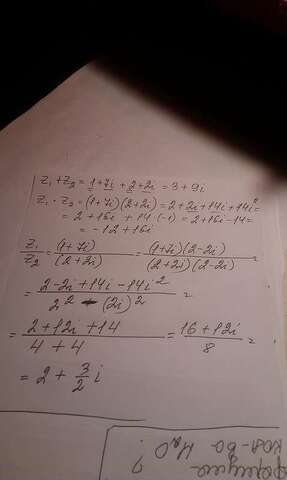 z₁+z₂ = 1+7i + 2+2i = 3+9i
z₁·z₂ = (1+7i)(2+2i) = 2+2i+14i+14i²=
= 2+16i +14·(-1) = 2+16i-14=
= -12+16i
z₁/z₂ = (1+7i)/(2+2i) = (1+7i)(2-2i)/(2+2i)(2-2i) =
= 2-2i+14i-14i²/2²-(2i)² =
= 2+12i+14/4+4 = 16+12i/8 =
= 2 + 3/2 i
кол-ва H₂O?